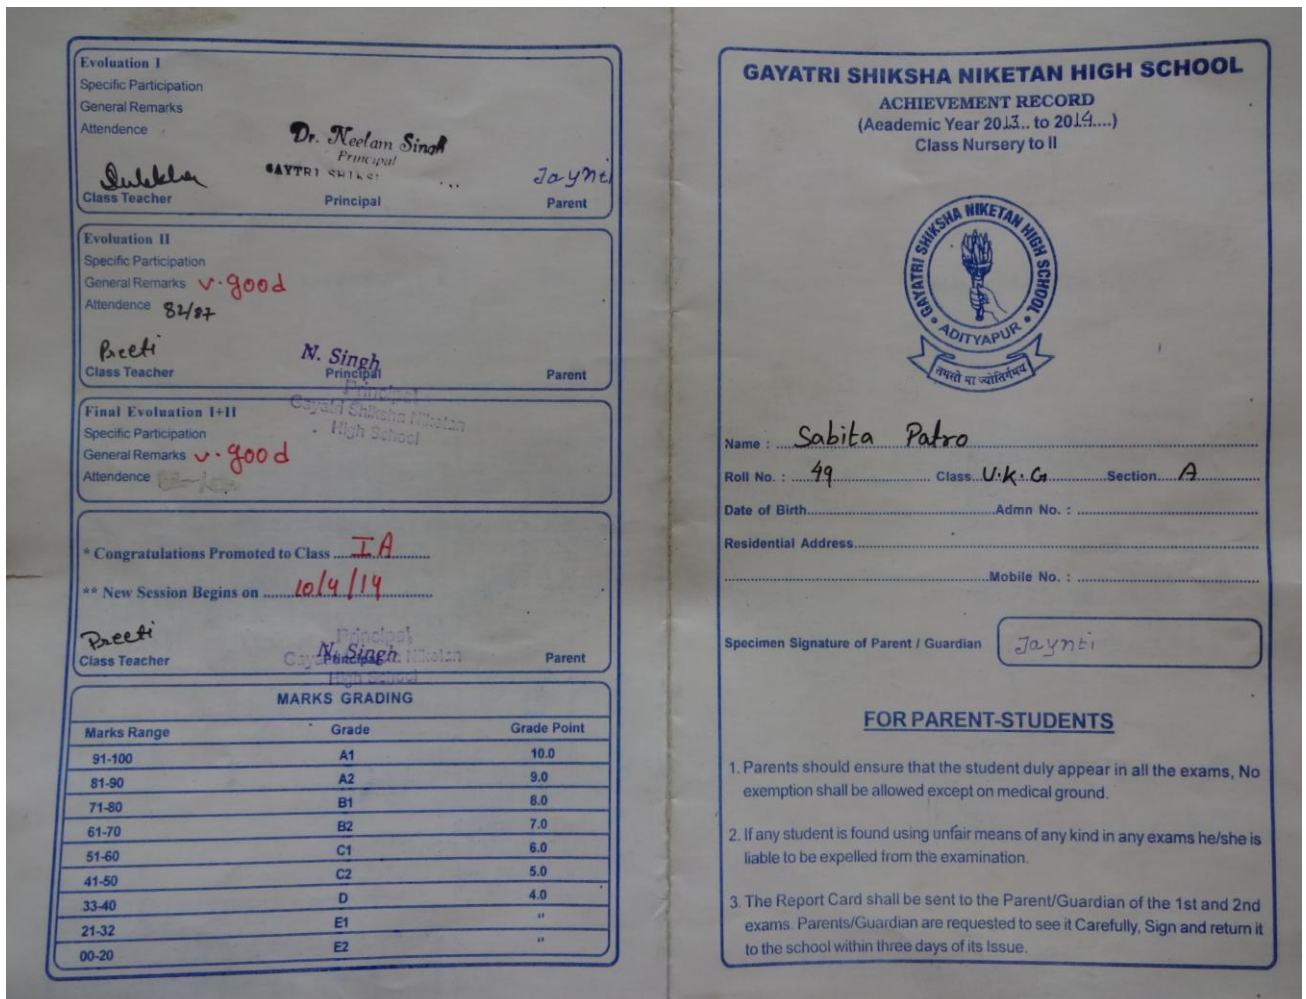 Evoluation I
Specific Participation
General Remarks
Attendence
Dr. Neelam Singh
Principal
GAYTRI
Jaynti
Class Teacher Principal Parent
Evoluation II
Specific Participation
General Remarks v. good
Attendence 82/87
Preeti
N. Singh
Class Teacher Principal Parent
Principal
Gayatri Shiksha Niketan
High School
Final Evoluation I+II
Specific Participation
General Remarks v. good
Attendence
* Congratulations Promoted to Class ..... I A ..........
** New Session Begins on ....... 10/4/14 ............
Preeti
N. Singh
Principal
Gayatri Shiksha Niketan
High School
Class Teacher Principal Parent
MARKS GRADING
Marks Range Grade Grade Point
91-100 A1 10.0
81-90 A2 9.0
71-80 B1 8.0
61-70 B2 7.0
51-60 C1 6.0
41-50 C2 5.0
33-40 D 4.0
21-32 E1 "
00-20 E2 "
GAYATRI SHIKSHA NIKETAN HIGH SCHOOL
ACHIEVEMENT RECORD
(Aeademic Year 2013.. to 2014....)
Class Nursery to II
GAYATRI SHIKSHA NIKETAN HIGH SCHOOL
ADITYAPUR
तमसो मा ज्योतिर्गमय
Name : Sabita Patro
Roll No. : 49 Class U.K.G Section A
Date of Birth Admn No. :
Residential Address
Mobile No. :
Specimen Signature of Parent / Guardian Jaynti
FOR PARENT-STUDENTS
1. Parents should ensure that the student duly appear in all the exams, No
exemption shall be allowed except on medical ground.
2. If any student is found using unfair means of any kind in any exams he/she is
liable to be expelled from the examination.
3. The Report Card shall be sent to the Parent/Guardian of the 1st and 2nd
exams. Parents/Guardian are requested to see it Carefully, Sign and return it
to the school within three days of its Issue.